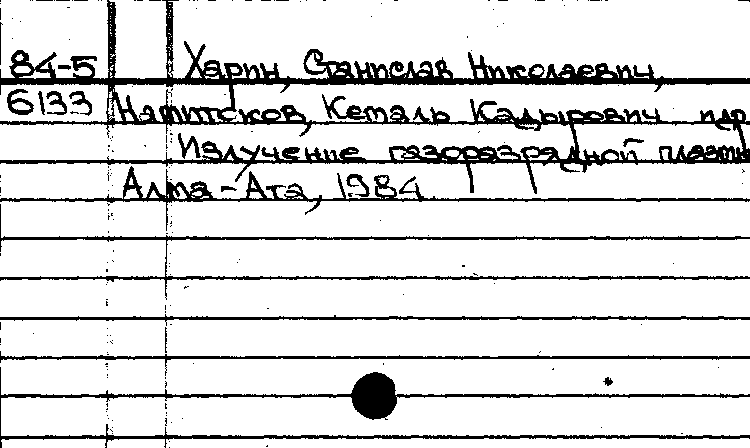 84-5 Харин, Станислав Николаевич,
6133 Кемаль Кадырович и др
Излучение газоразрядной плазмы
Алма-Ата, 1984